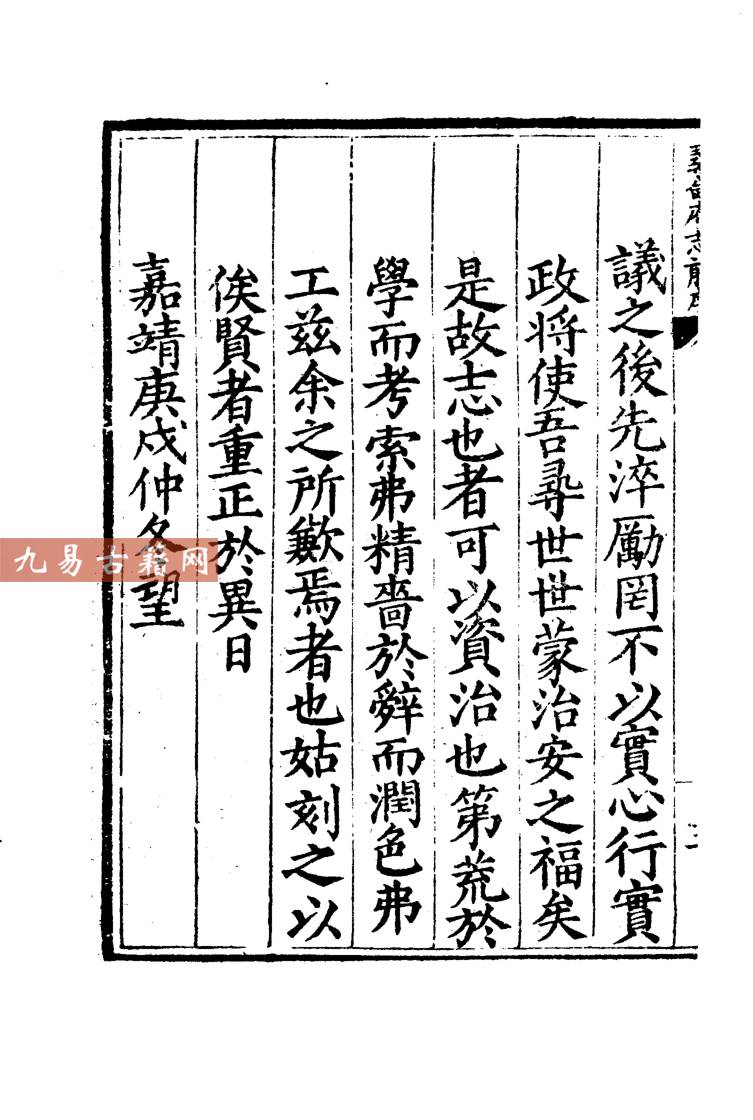 議之後先淬勵罔不以實心行實
政將使吾尋世世蒙治安之福矣
是故志也者可以資治也第荒於
學而考索弗精嗇於辭而潤色弗
工兹余之所歉焉者也姑刻之以
俟賢者重正於異日
嘉靖庚戌仲冬望
九易古籍网